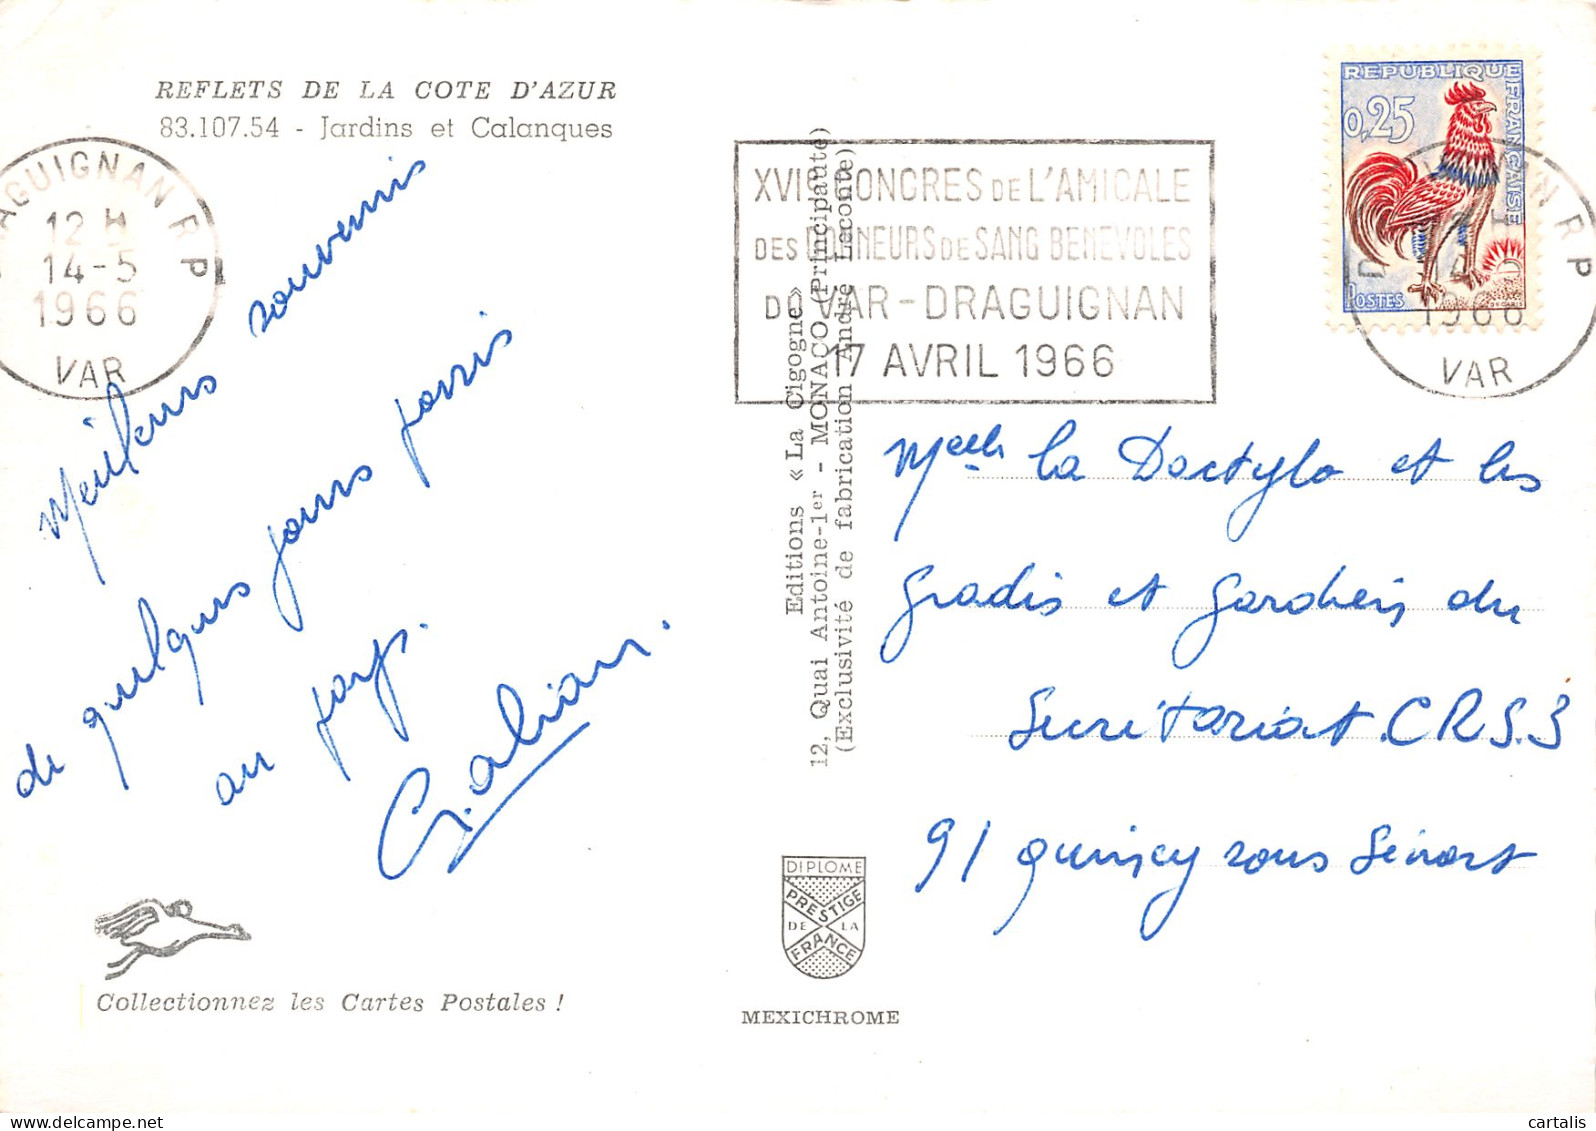 REFLETS DE LA COTE D'AZUR
83.107.54 - Jardins et Calanques
DRAGUIGNAN R P
12 H
14-5
1966
VAR
XVIe CONGRES DE L'AMICALE
DES DONNEURS DE SANG BENEVOLES
DU VAR - DRAGUIGNAN
17 AVRIL 1966
REPUBLIQUE FRANÇAISE
0,25
POSTES
DECARIS
R P
1966
VAR
Meilleurs souvenirs
de quelques jours passés
au pays.
G. alian.
Editions « La Cigogne »
12, Quai Antoine-1er - MONACO (Principauté)
(Exclusivité de fabrication André Leconte)
Melle la Dactylo et les
gradés et gardiens du
Secrétariat CRS.3
91 Quincy sous Sénart
DIPLOME
PRESTIGE
DE LA
FRANCE
Collectionnez les Cartes Postales !
MEXICHROME
cartalis